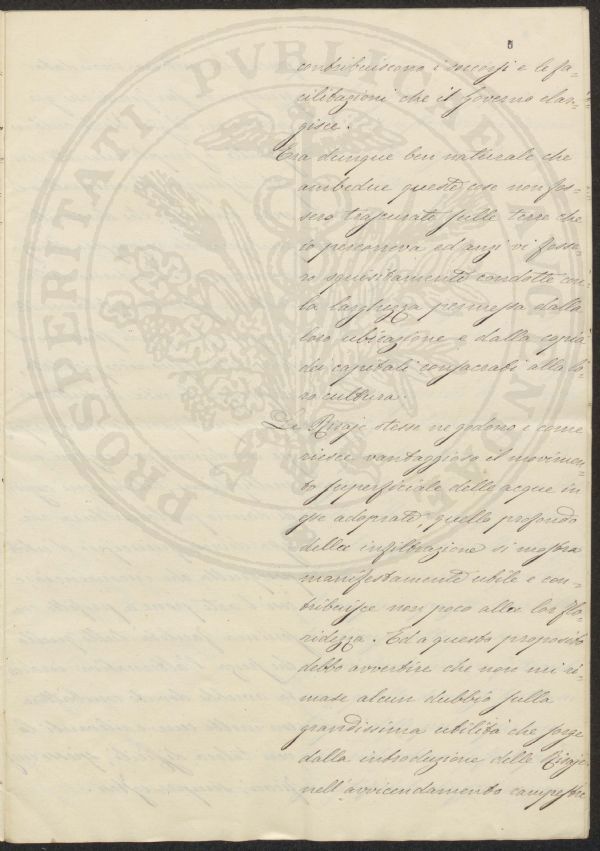 5
contribuiscono i soccorsi e le fa-
cilitazioni che il Governo elar-
gisce.
Era dunque ben naturale che
ambedue queste cose non fos-
sero trascurate sulle terre che
io percorreva ed anzi vi fosse-
ro squisitamente condotte con
la larghezza permessa dalla
loro ubicazione e dalla copia
dei capitali consacrati alla lo-
ro cultura.
Le Risaje stesse ne godono e come
riesce vantaggioso il movimen-
to superficiale delle acque in
esse adoprate quello profondo
della infiltrazione si mostra
manifestamente utile e con-
tribuisce non poco alla lor flo-
ridezza. Ed a questo proposito
debbo avvertire che non mi ri-
mase alcun dubbio sulla
grandissima utilità che sorge
dalla introduzione delle Risaje
nell'avvicendamento campestre
PROSPERITATI PVBLICAE